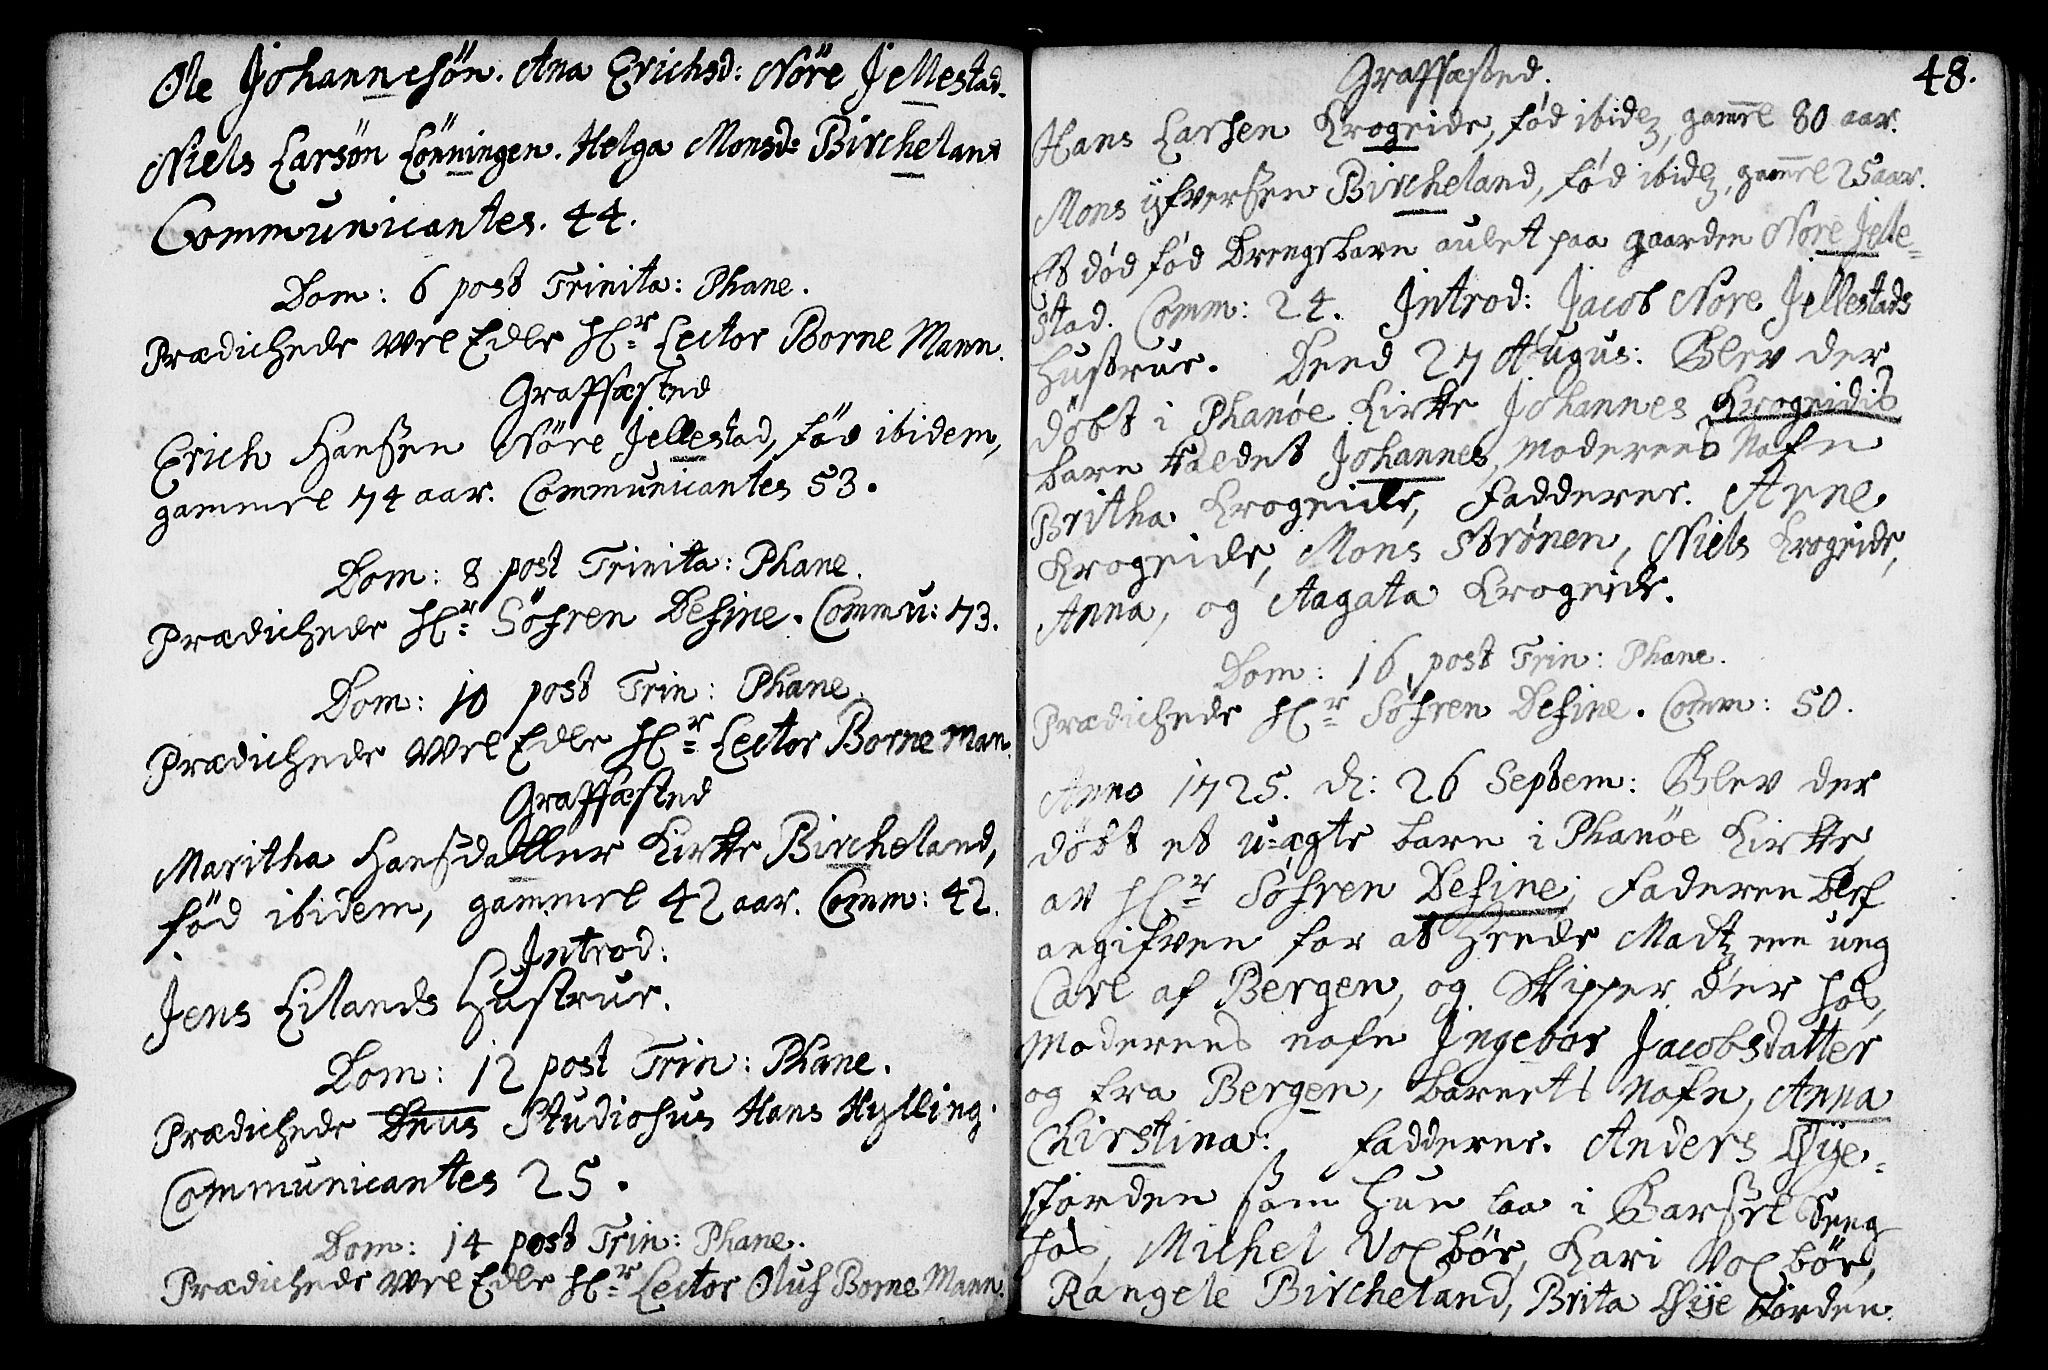 Ole Johannesön. Ana Erichsd: Nöre Jellestad.
Niels Larsön Lönningen. Helga Monsd: Bircheland
Communicantes. 44.
Dom: 6 post Trinita: Phane.
Prædichede Wel Edle Hr: Lector Borne Mann.
Graffæsted
Erich Hanßen Nöre Jellestad, fød ibidem,
gammel 74 aar. Communicantes 53.
Dom: 8 post Trinita: Phane.
Prædichede Hr: Söfren Define. Commu: 73.
Dom: 10 post Trin: Phane.
Prædichede Wel Edle Hr: Lector Borne Man
Graffæsted
Maritha Hanßdatter Kirke Bircheland,
fød ibidem, gammel 42 aar. Comm: 42.
Introd:
Jens Lilands Hustrue.
Dom: 12 post Trin: Phane.
Prædichede Dnus Studiosus Hans Hylling.
Communicantes 25.
Dom: 14 post Trin: Phane.
Prædichede Wel Edle Hr: Lector Oluf Borne Mann.
48.
Graffæsted.
Hans Larsen Krogeide, fød ibid, gamel 80 aar.
Mons ifverßen Bircheland, fød ibid, gamel 25 aar.
Et død fød Drengebarn aulet paa gaarden Nøre Jelle=
stad. Comm: 24. Introd: Jacob Nøre Jellestads
Hustrue. Dend 27 Augus: Blev der
døbt i Phanöe Kirke Johannes Krogeidis
barn kaldet Johannes, Moderens Nafn
Britha Krogeide, Faddere. Arne
Krogeide, Mons Strönen, Niels Krogeide,
Anna, og Aagata Krogeide.
Dom: 16 post Trin: Phane.
Prædichede Hr: Söfren Define. Comm: 50.
Anno 1725. d: 26 Septem: Blev der
døbt et u=ægte barn i Phanöe Kirke
av Hr: Söfren Define; Faderen blef
angifven for at Hede Madtz een ung
Carl af Bergen, og Skipper der hos,
Moderens nafn Ingebor Jacobsdatter
og fra Bergen, barnets Nafn, Anna
Chirstina: Faddere. Anders
storden som hun laa i Barßel Seng
hos, Michel Voxbör, Kari Voxbör,
Rangele Bircheland, Brita storden.